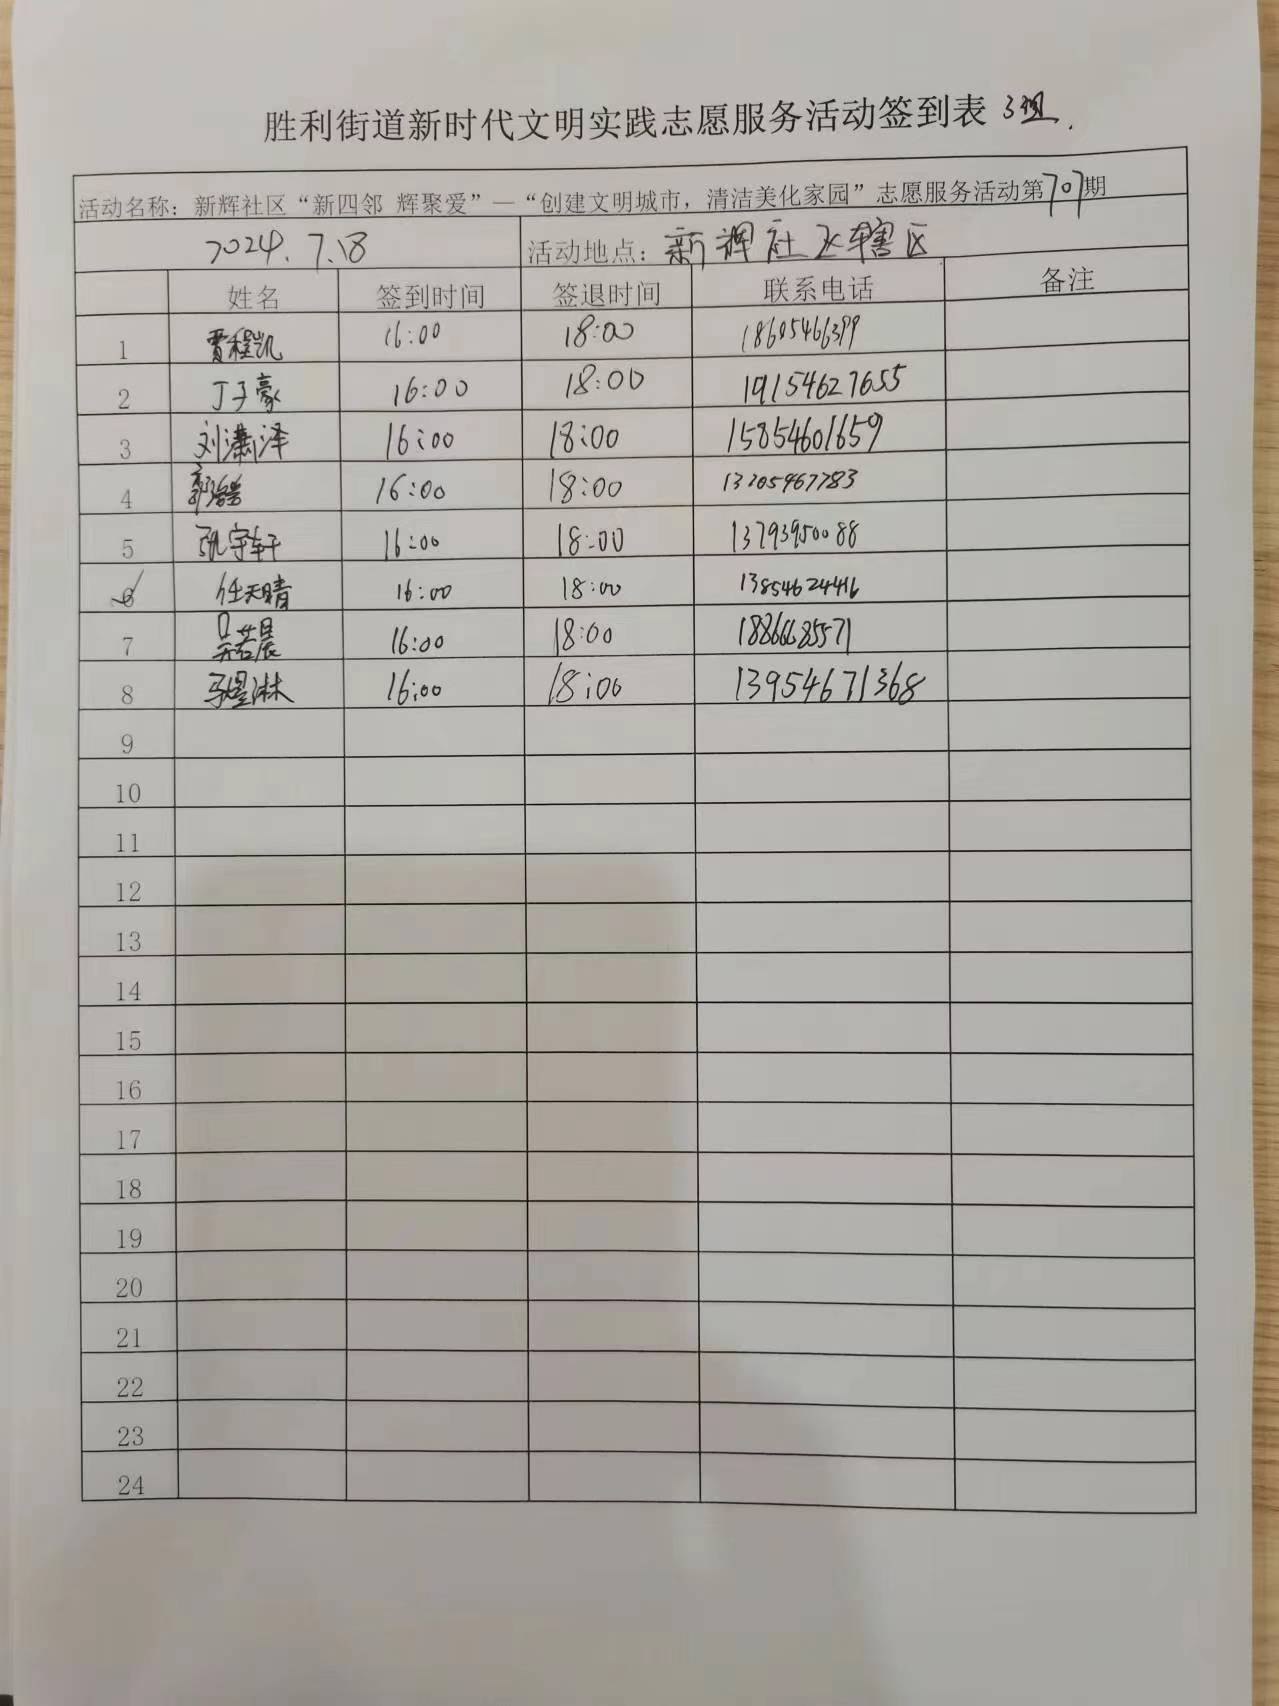 胜利街道新时代文明实践志愿服务活动签到表 3组.
活动名称：新辉社区“新四邻 辉聚爱”—“创建文明城市，清洁美化家园”志愿服务活动第707期
2024.7.18 活动地点：新辉社区辖区
姓名 签到时间 签退时间 联系电话 备注
1 贾程凯 16:00 18:00 18605466399
2 丁子豪 16:00 18:00 19154627655
3 刘潇泽 16:00 18:00 15854601659
4 16:00 18:00 13205467783
5 张宇轩 16:00 18:00 13793950088
6 任天晴 16:00 18:00 13854624416
7 吴若晨 16:00 18:00 18866685571
8 马煜淋 16:00 18:00 13954671368
9
10
11
12
13
14
15
16
17
18
19
20
21
22
23
24